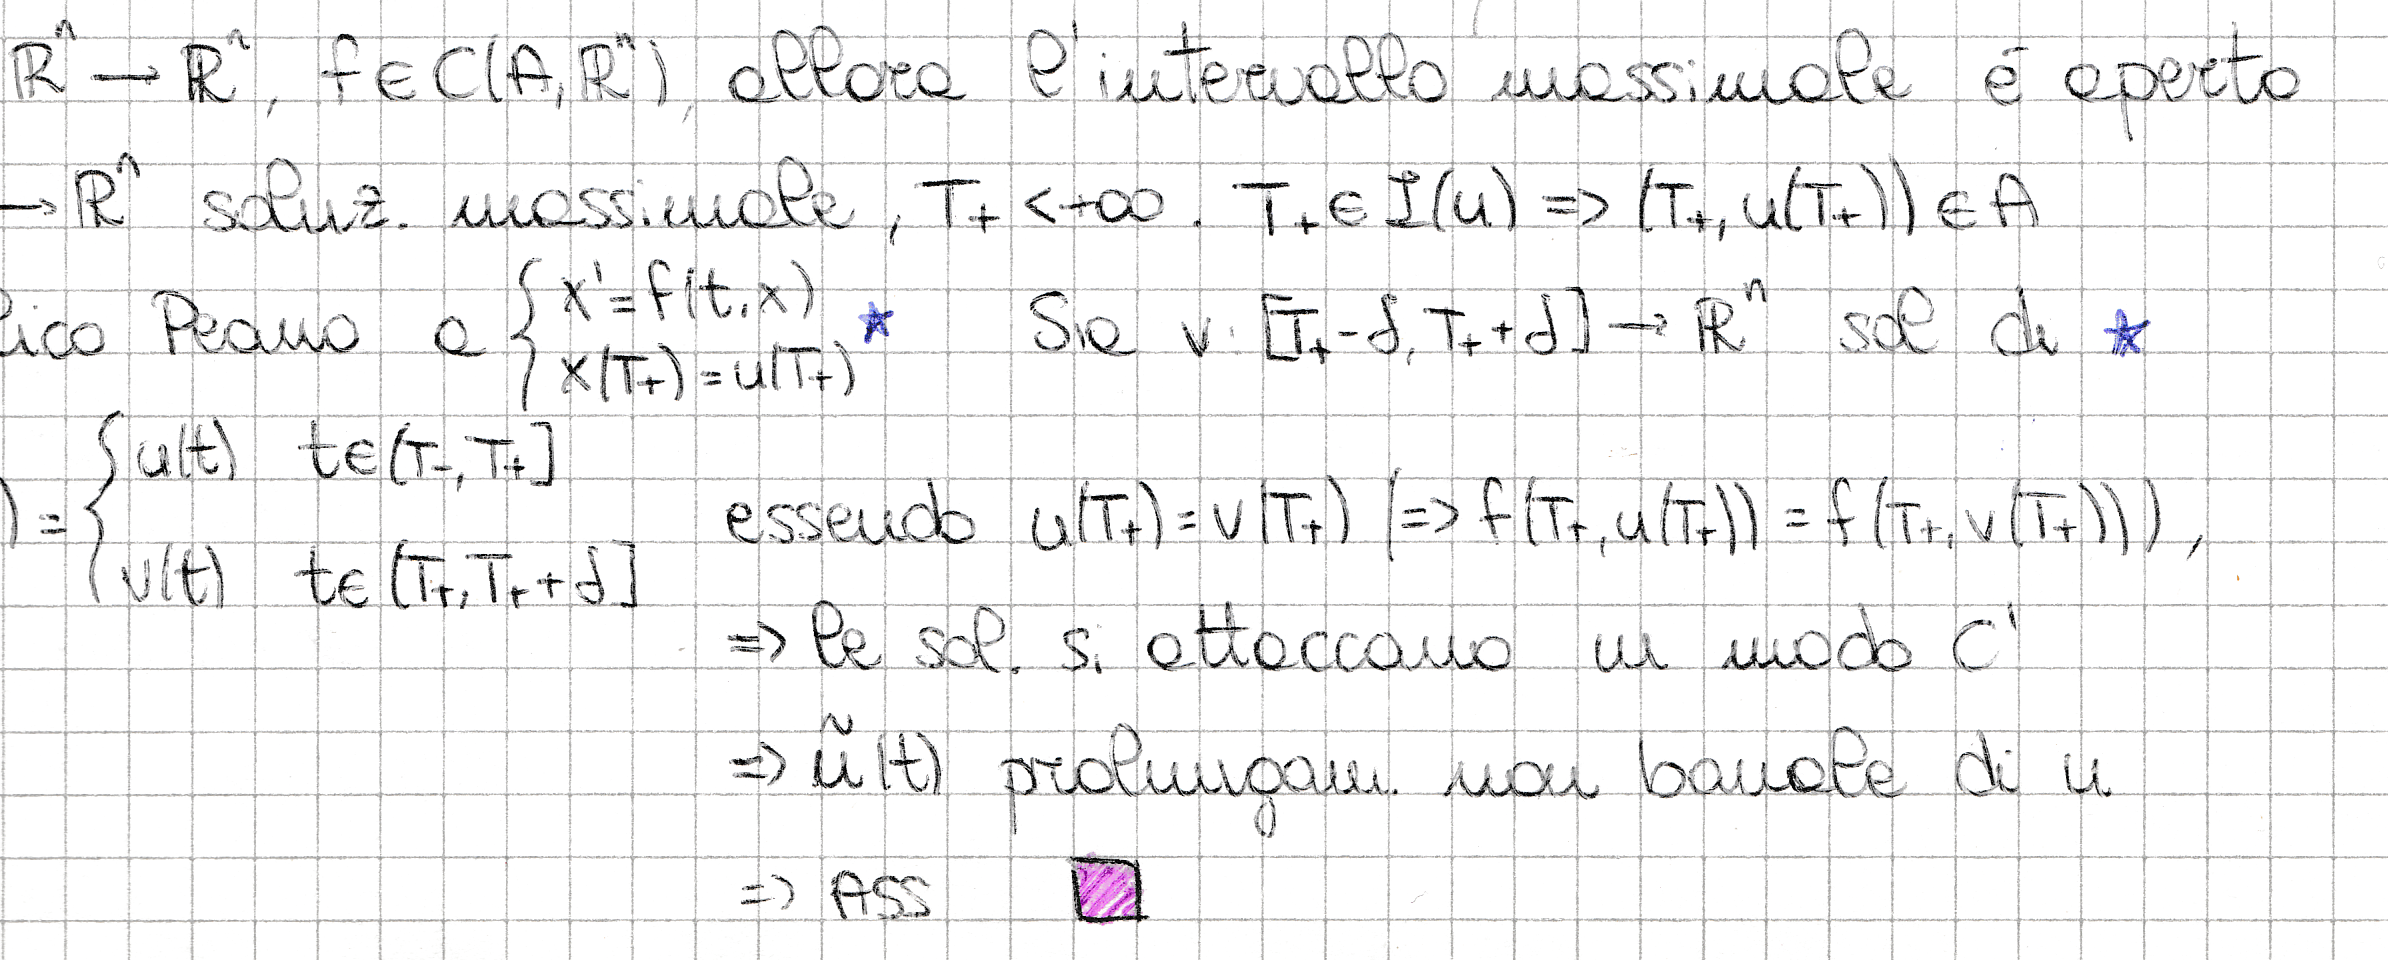 ℝⁿ → ℝⁿ, f ∈ C(A,ℝⁿ), allora l'intervallo massimale é aperto
→ ℝⁿ soluz. massimale, T₊ < +∞. T₊ ∈ I(u) => (T₊, u(T₊)) ∈ A
lico Peano a { x' = f(t,x) ★ Sia v: [T₊-δ, T₊+δ] → ℝⁿ sol di ★
x(T₊) = u(T₊)
) = { u(t) t∈(T₋, T₊]
essendo u(T₊) = v(T₊) (=> f(T₊, u(T₊)) = f(T₊, v(T₊))),
v(t) t∈(T₊, T₊+δ]
=> le sol. si attaccano in modo C¹
=> ũ(t) prolungam. non banale di u
=> ASS